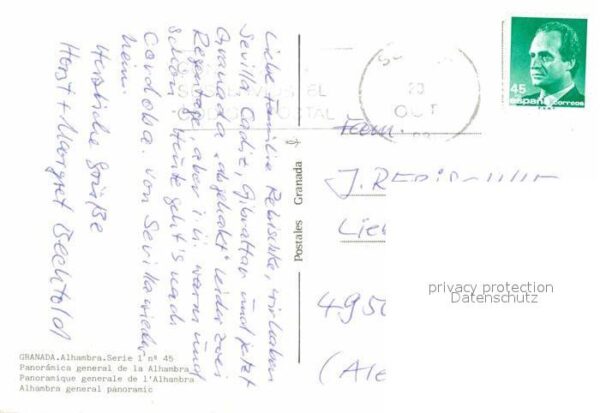 Liebe Familie Rebischke, wir haben
Sevilla, Cadiz, Gibraltar und jetzt
Granada "abgehakt". Leider zwei
Regentage, aber i.ü. warm und
schön. Heute geht's nach
Cordoba. von Sevilla wieder
heim.
Herzliche Grüße
Horst + Margret Bechtold
GRANADA.Alhambra.Serie 1 nº 45
Panorámica general de la Alhambra
Panoramique generale de l'Alhambra
Alhambra general panoramic
Postales Granada
45
españa correos
20
OCT
Fam.
J. 
Lie
495
(Ale
privacy protection
Datenschutz